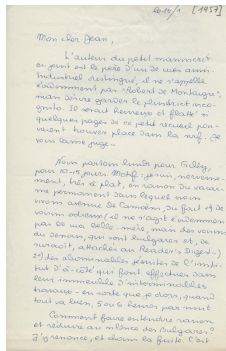 6010/1 [1957]
Mon cher Jean,
L'auteur du petit manuscrit
ci-joint est le père d'un de mes amis.
Industriel distingué, il ne s'appelle
évidemment pas "Robert de Montaigu",
mais désire garder le plus strict inco-
gnito. Il serait heureux et flatté si
quelques pages de ce petit recueil pou-
vaient trouver place dans la nrf. Je
vous laisse juge.
Nous partons lundi pour
pour 10-15 jours. Motif: je suis, nerveuse-
ment, très à plat, en raison du vacar-
me permanent dans lequel nous
vivons avenue de Camoëns, du fait 1° de
voisins odieux (il ne s'agit évidemment
pas de ma belle-mère, mais des voisins
du dessous, qui sont bulgares et, de
surcroît, attachés au Reader's Digest...)
2°) des abominables jésuites de l'insti-
tut d'à-côté qui font effectuer dans
leur immeuble d'interminables
travaux - en sorte que je dors, quand
tout va bien, 5 ou 6 heures par nuit.
Comment faire entendre raison
et réduire au silence des Bulgares?
J'y renonce, et fuis. C'est